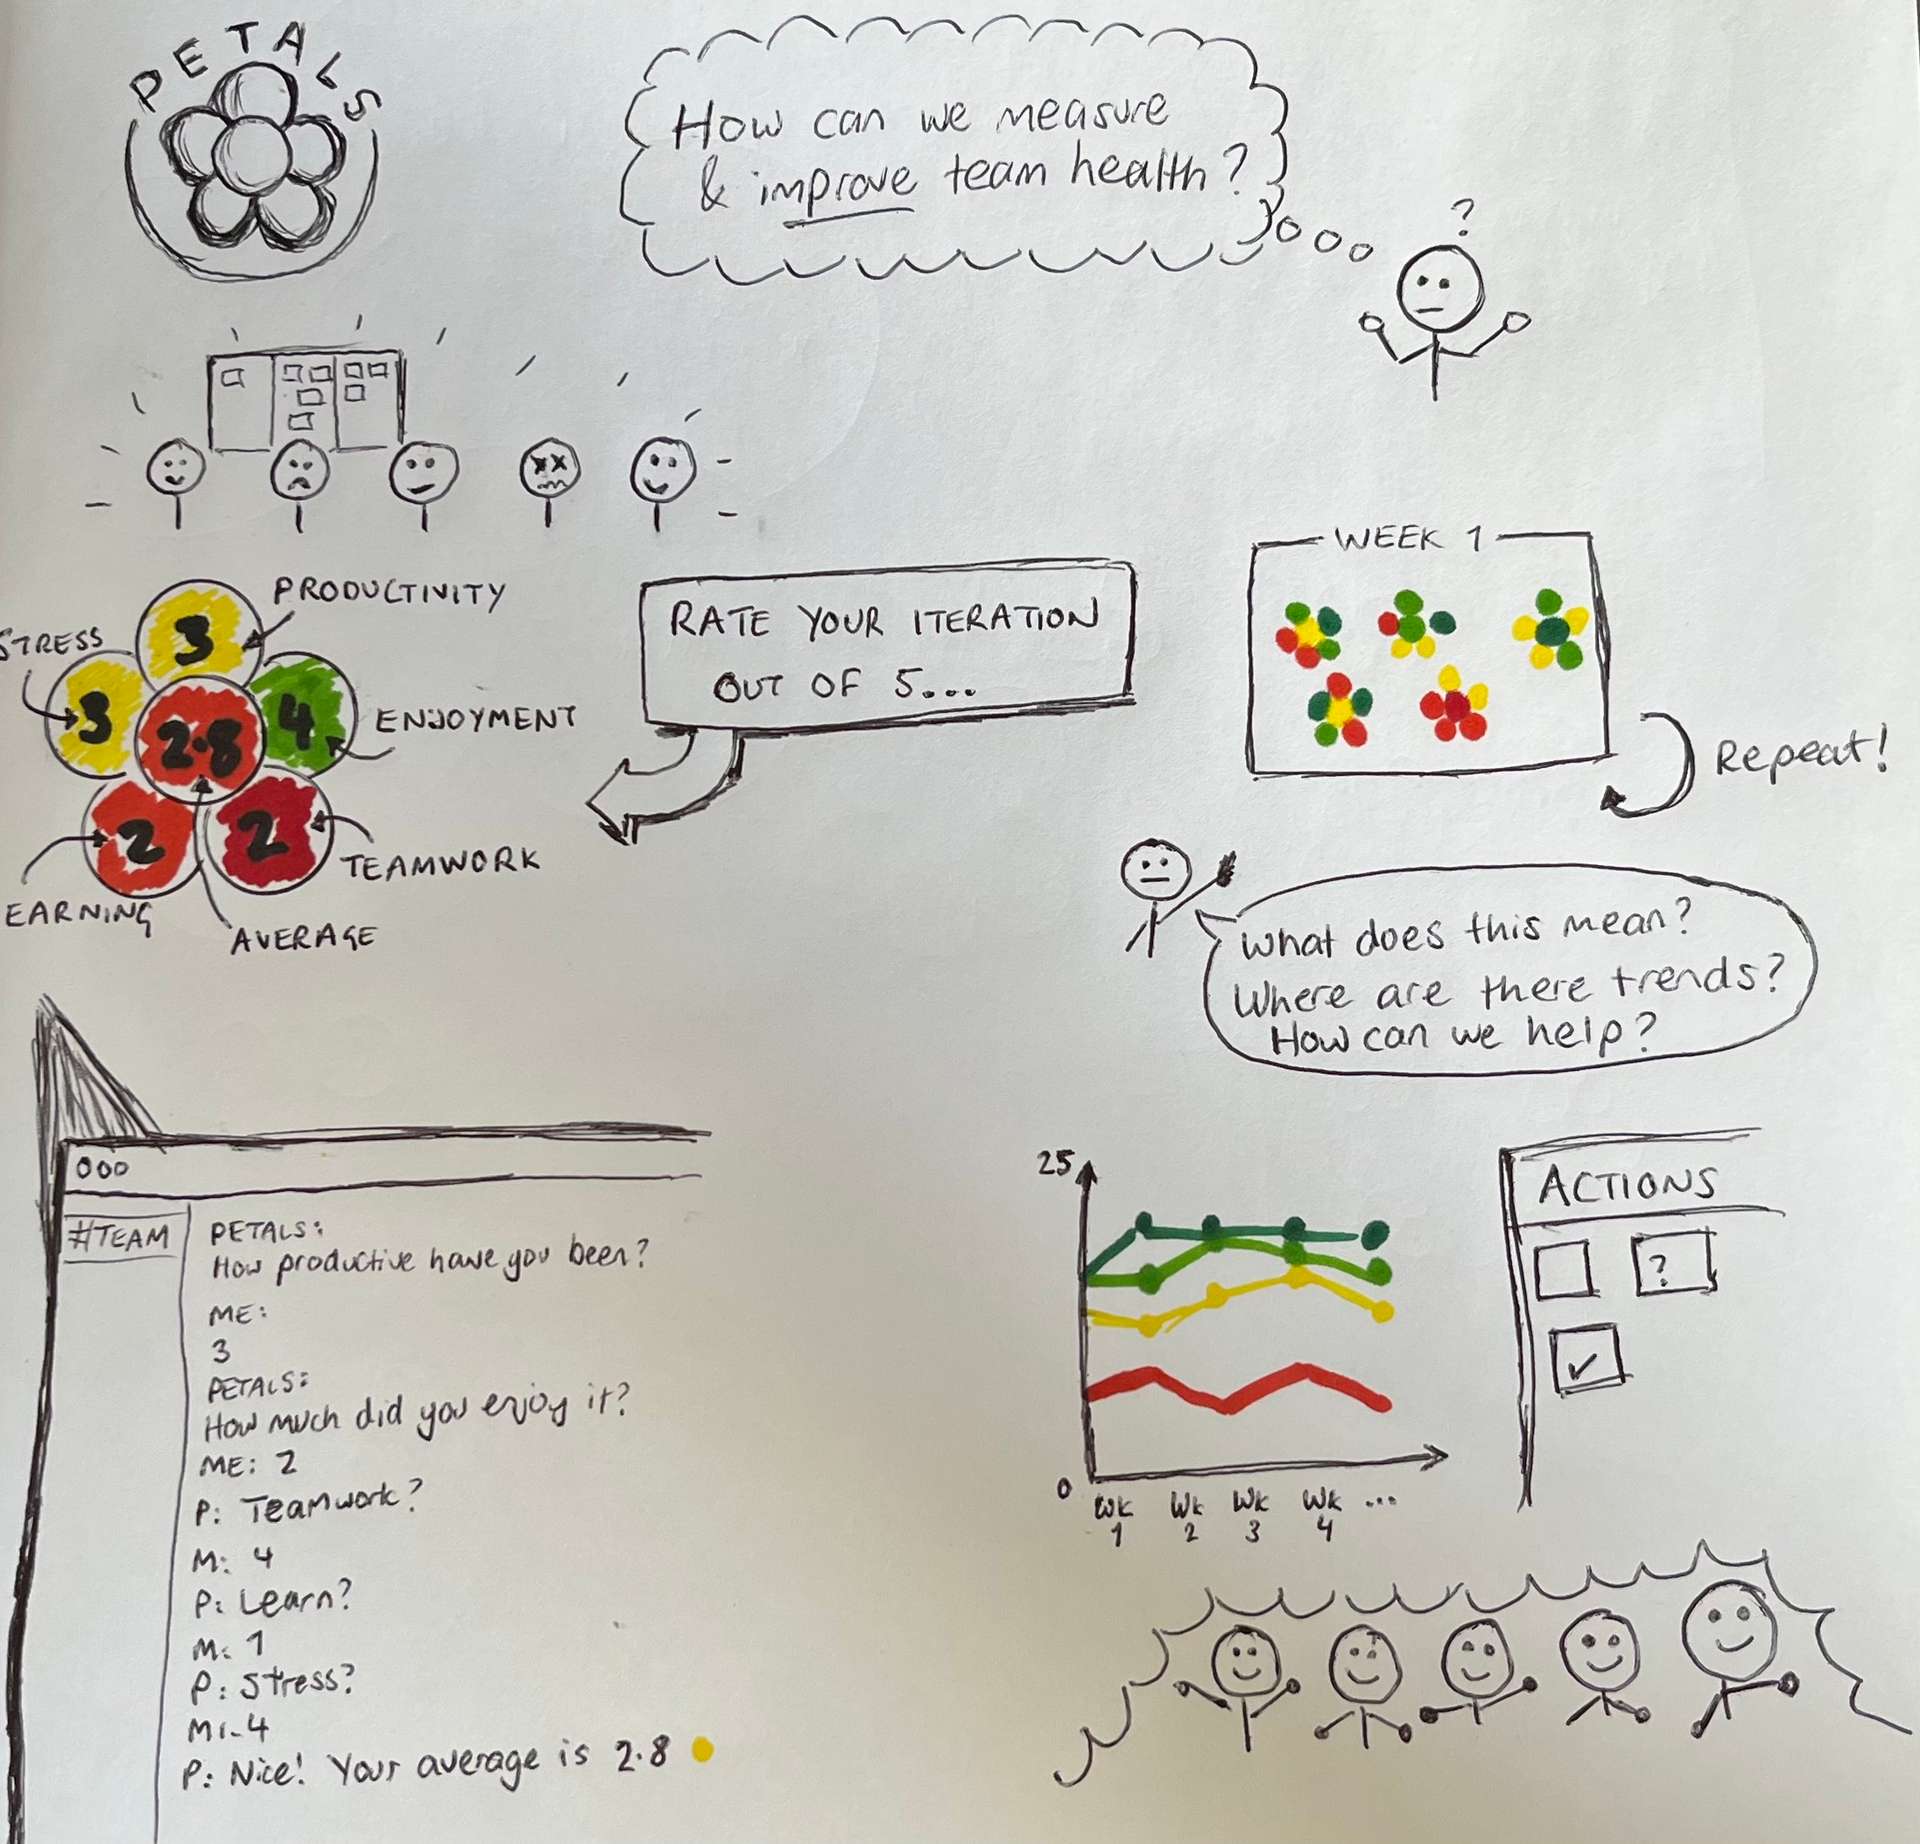 PETALS
How can we measure
& improve team health?
?
PRODUCTIVITY
STRESS
3
3
2.8
4
ENJOYMENT
2
2
TEAMWORK
EARNING
AVERAGE
RATE YOUR ITERATION
OUT OF 5...
WEEK 1
Repeat!
What does this mean?
Where are there trends?
How can we help?
#TEAM
PETALS:
How productive have you been?
ME:
3
PETALS:
How much did you enjoy it?
ME: 2
P: Teamwork?
M: 4
P: Learn?
M: 1
P: Stress?
M: 4
P: Nice! Your average is 2.8
25
0
Wk 1
Wk 2
Wk 3
Wk 4 ...
ACTIONS
?